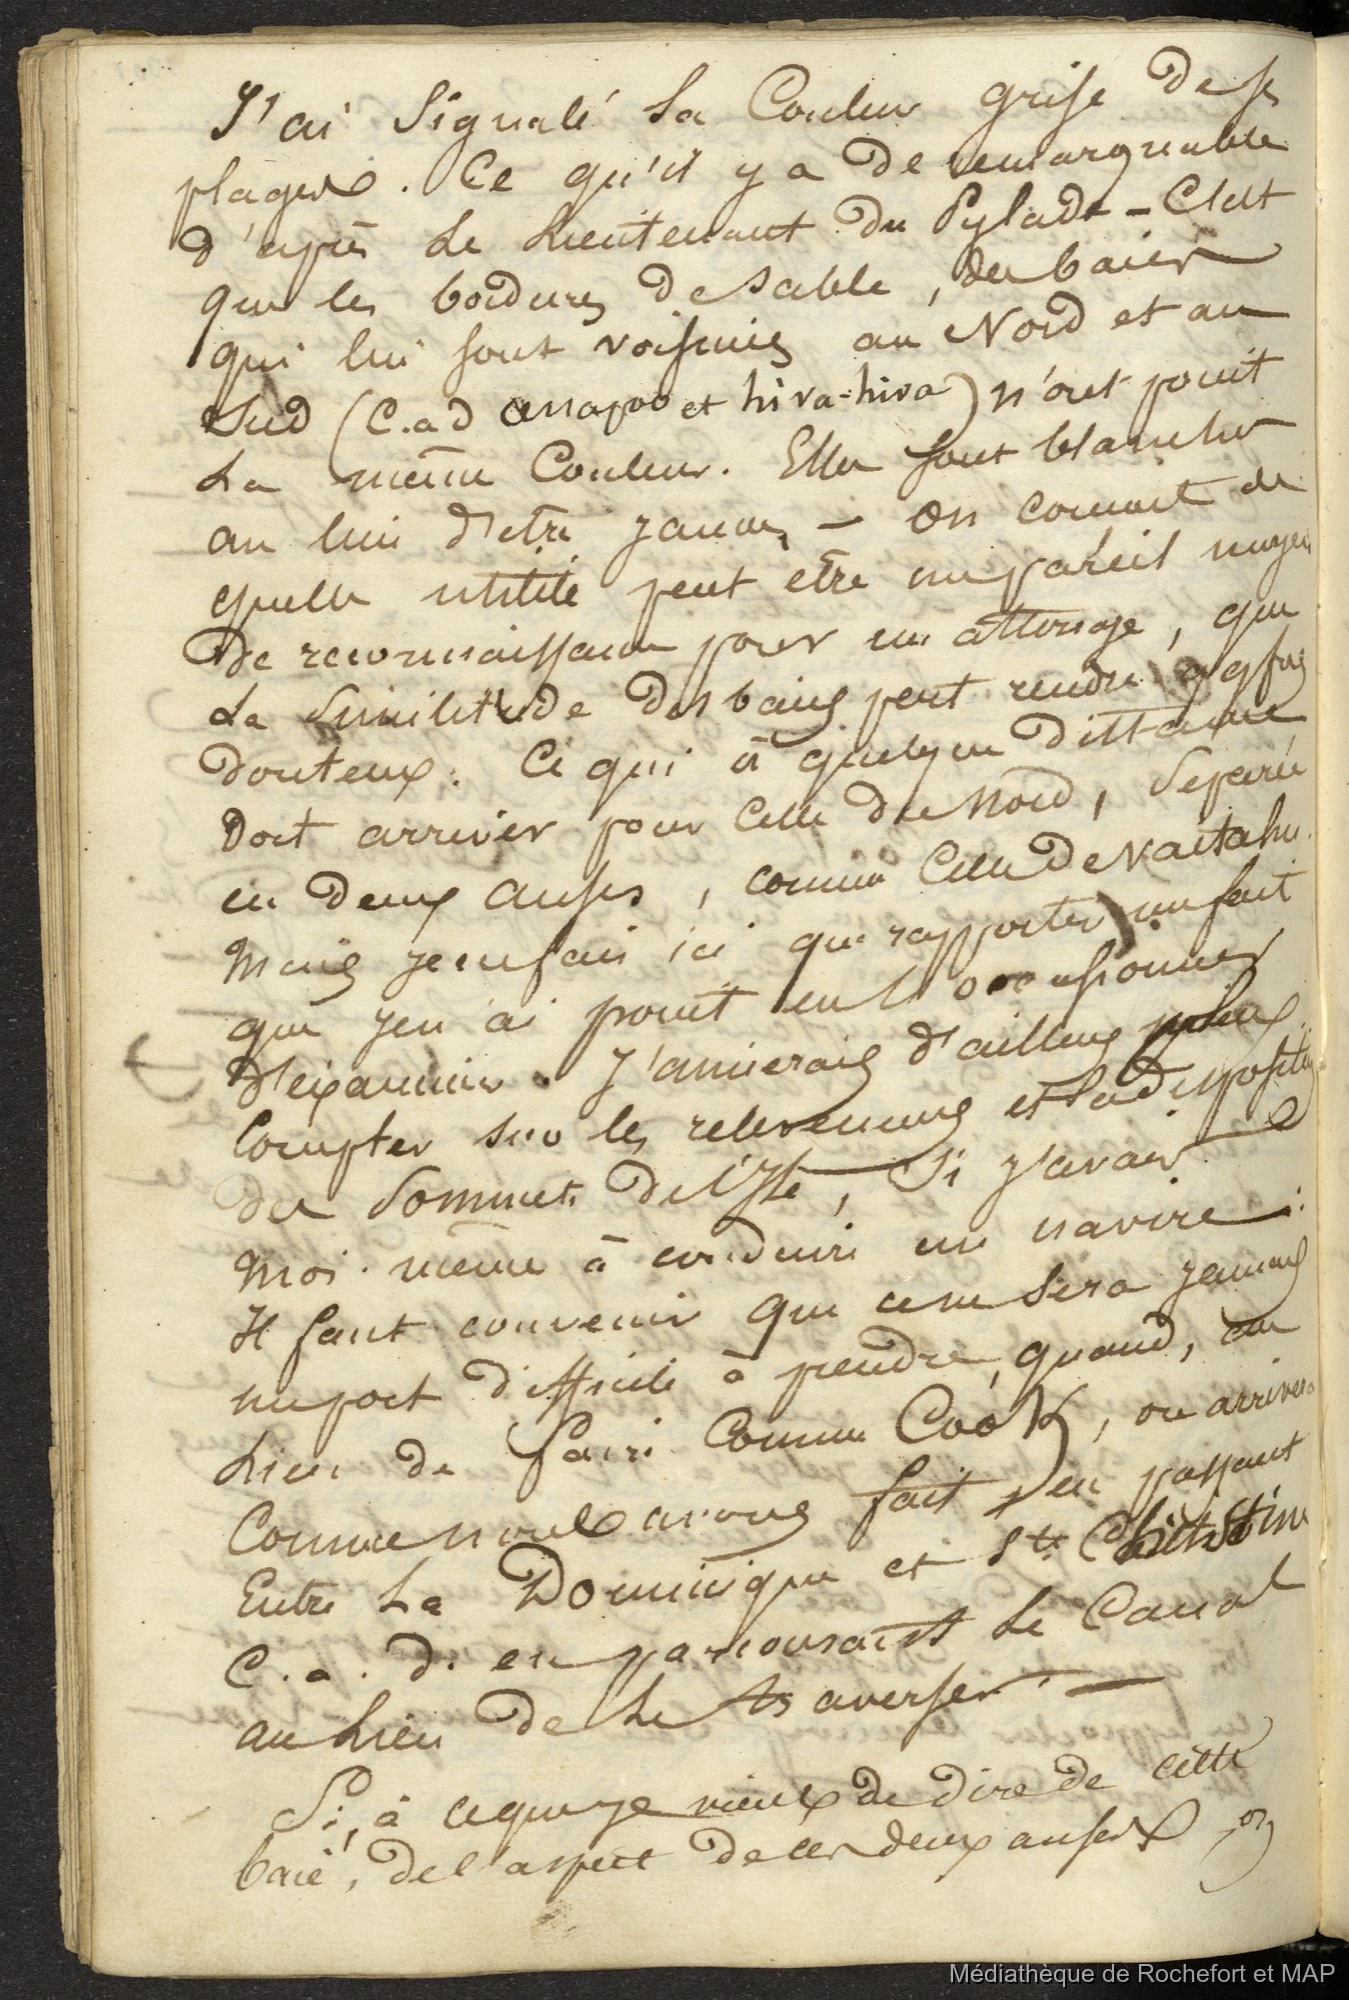 J'ai signalé la Couleur grise de ses
plages. Ce qu'il y a de remarquable
d'après le Lieutenant du Pylade - C'est
que les bordures de sable, des baies
qui lui sont voisines au Nord et au
Sud (C.a.d anapoo et hiva-hiva) n'ont point
La même Couleur. Elles sont blanches
au lieu d'etre jaunes - On connait de
quelle utilité peut etre un pareil moyen
De reconnaissance pour un atterrage, que
La similitude des baies peut rendre qqfois
Douteux. Ce qui à quelque distance
Doit arriver pour Celle du Nord, séparée
en deux anses, comme Celle de Vaitahu.
Mais je ne fais ici que rapporter un fait
que je n'ai point eu l'occasion
d'examiner. J'aimerais d'ailleurs mieux
Compter sur les relevemens et la disposition
des sommets de l'Isle, si j'avais
moi-même à conduire un navire.
Il faut convenir que ce ne sera jamais
un port difficile à prendre, quand, au
Lieu de faire Comme Cook, on arrivera
Comme nous avons fait, en passant
Entre La Dominique et Ste Christine
C.a.d. en parcourant Le Canal
au Lieu de Le traverser. —
Si, à ce que je viens de dire de cette
baie, de l'aspect de ces deux anses on
Médiathèque de Rochefort et MAP